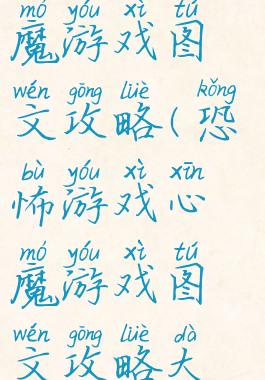 mó yóu xì tú
魔游戏图
wén gōng lüè kǒng
文攻略(恐
bù yóu xì xīn
怖游戏心
mó yóu xì tú
魔游戏图
wén gōng lüè dà
文攻略大